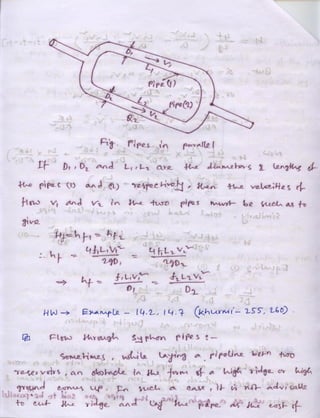 D₁
L₁
→ V₁
Pipe (1)
D₂
L₂
→ V₂
Pipe (2)
Fig: Pipes in parallel
If D₁, D₂ and L₁, L₂ are the diameters & lengths of
the pipes (1) and (2) respectively, then the velocities of
flow V₁ and V₂ in the two pipes must be such as to
give
hf = hf₁ = hf₂
∴ hf = 4f₁L₁V₁² / 2gD₁ = 4f₂L₂V₂² / 2gD₂
⇒ hf = f₁L₁V₁² / D₁ = f₂L₂V₂² / D₂
HW → Example - 14.2, 14.7 (Khurmi - 255, 260).
Flow through syphon pipes :-
Sometimes, while laying a pipeline betn two
reservoirs, an obstacle in the form of a high ridge or high
ground comes up. In such a case, it is not advisable
to cut the ridge and lay the pipe as the cost of